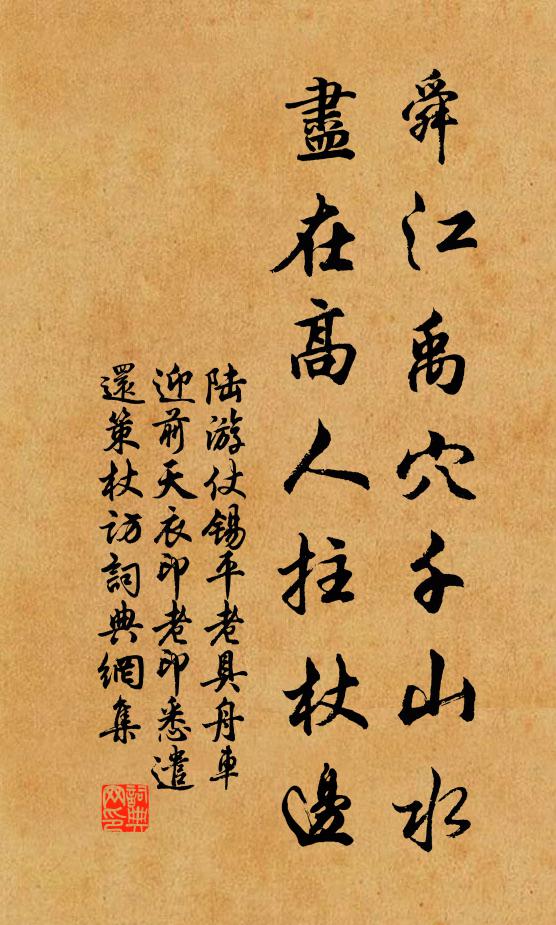 舜江禹穴千山水
盡在高人拄杖邊
陆游仗锡平老具舟車
迎前天衣印老印悉遣
還策杖访詞典網集
詞典网印